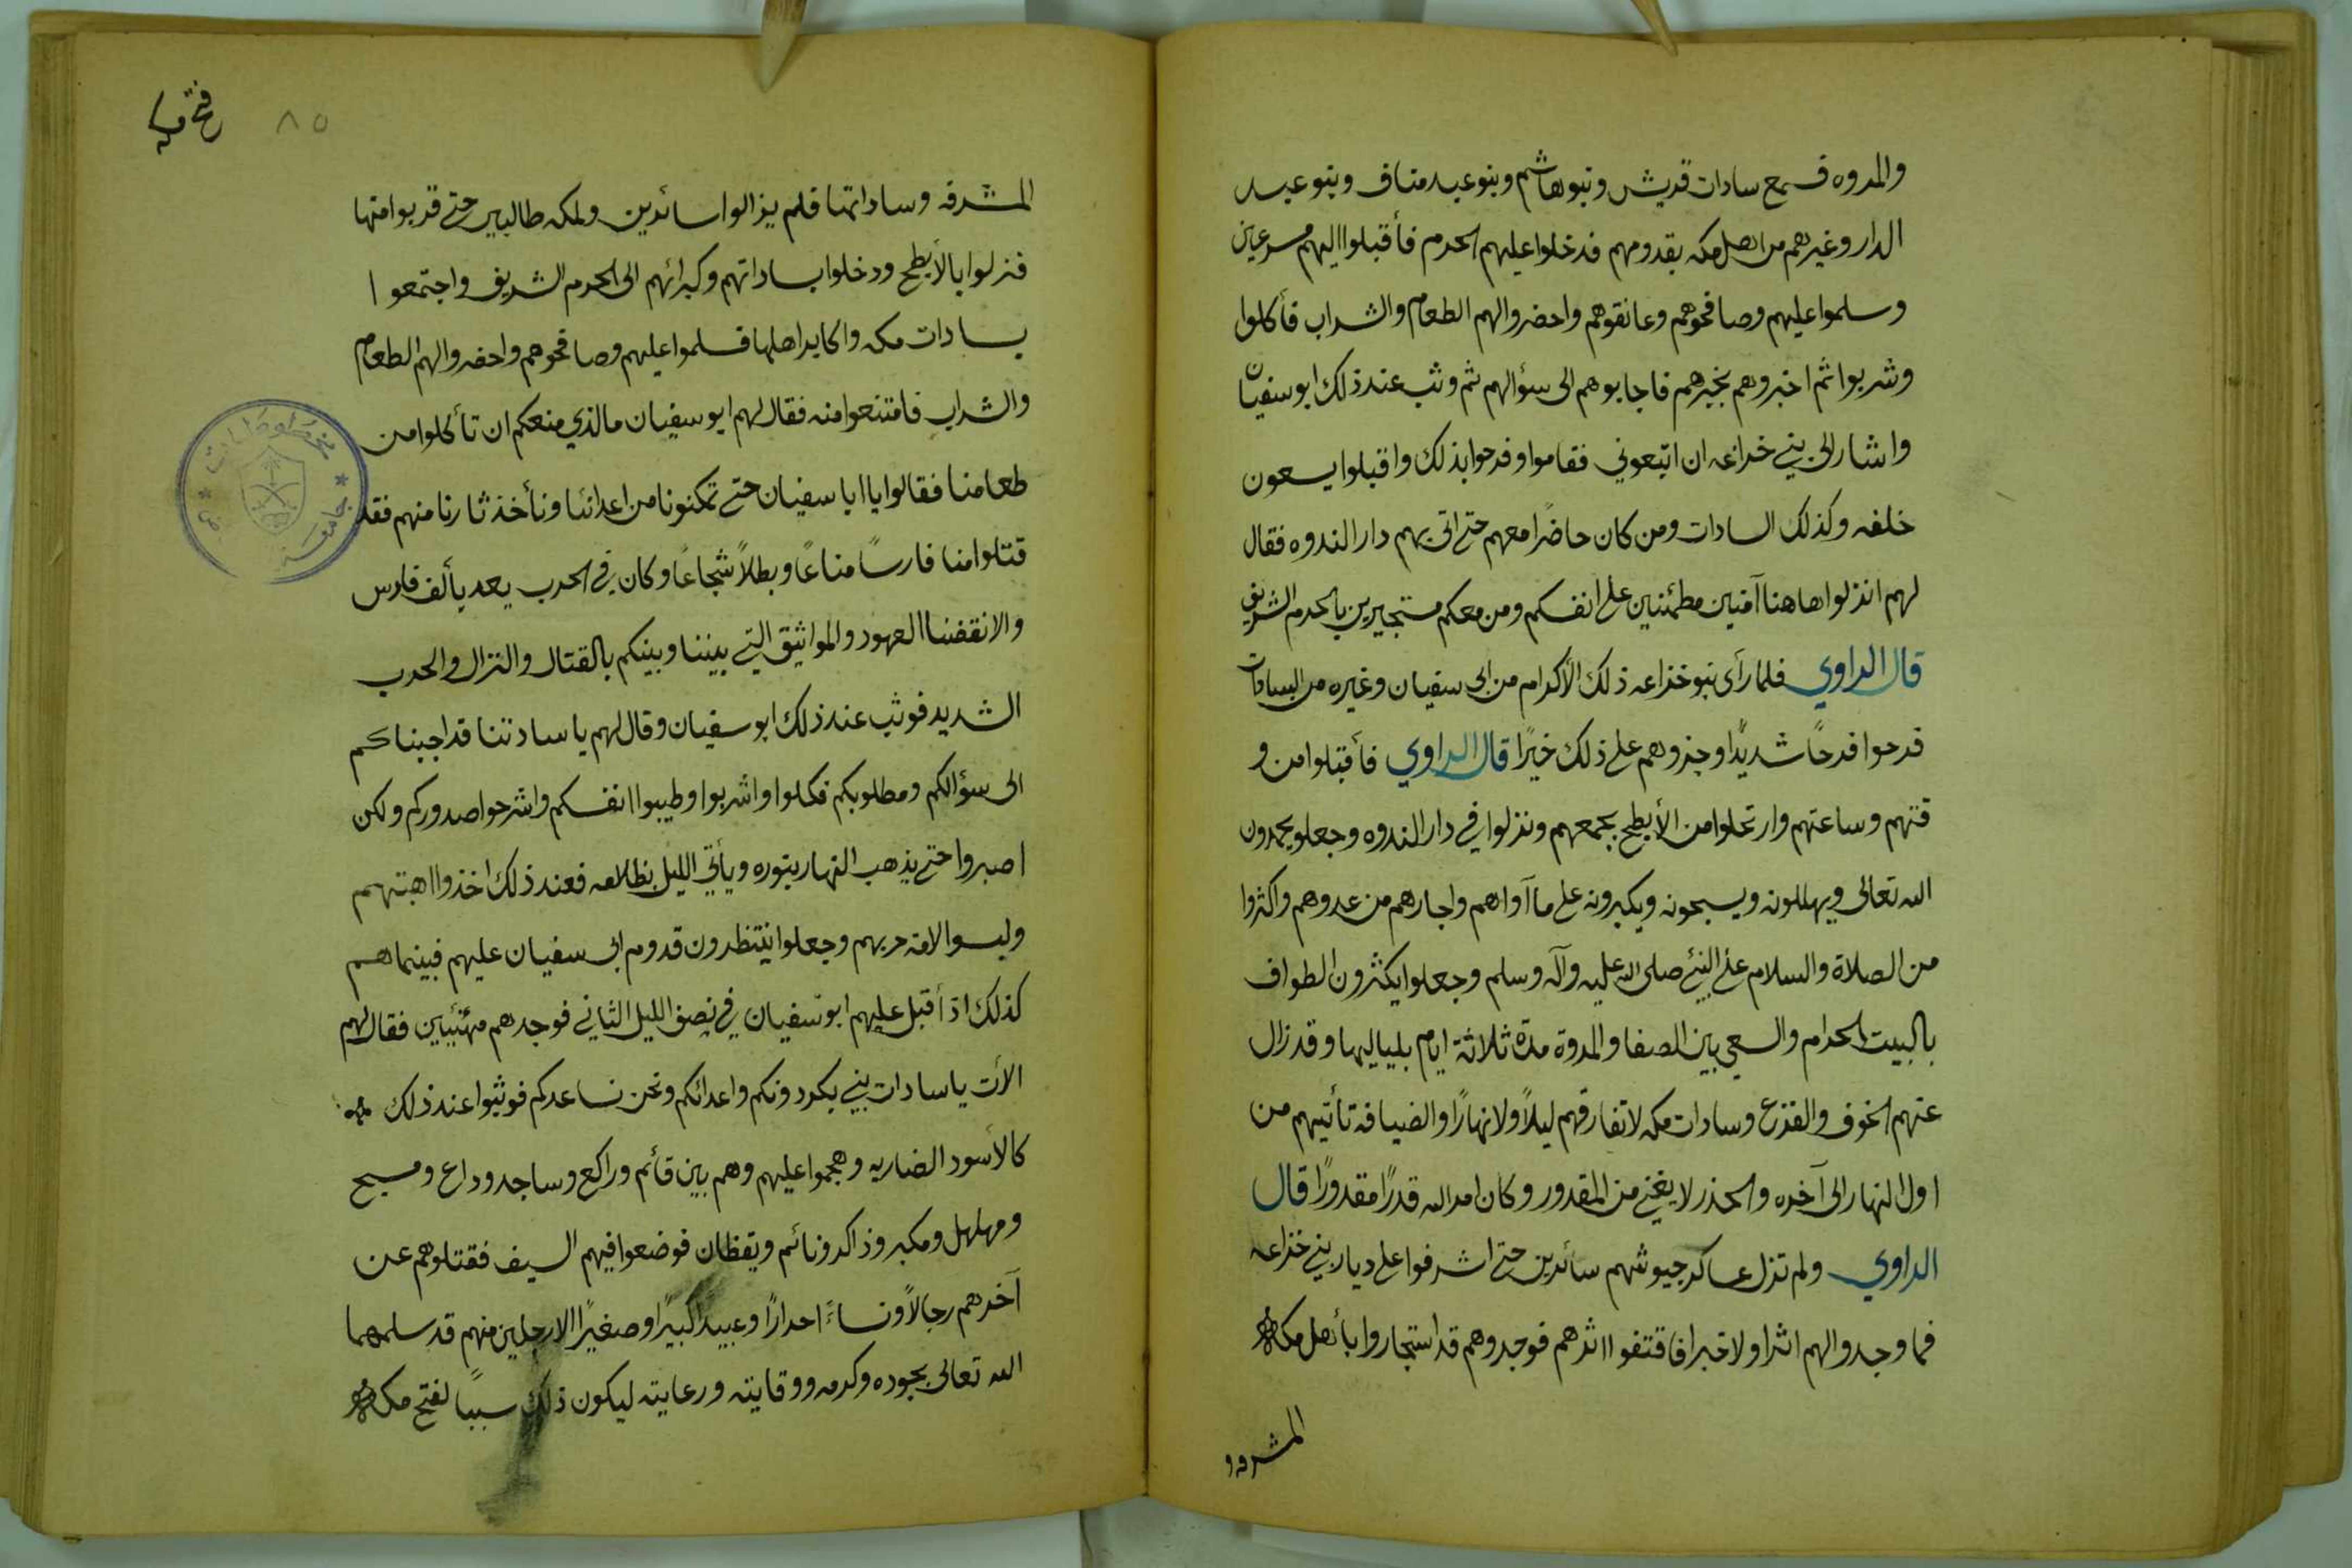 والمروه فسمع سادات قريش وبنوهاشم وبنوعبد مناف وبنوعبد
الدار وغيرهم من اهل مكه بقدومهم فدخلوا عليهم الحرم فأقبلوا اليهم مسرعين
وسلموا عليهم وصافحوهم وعانقوهم واحضروا لهم الطعام والشراب فأكلوا
وشربوا ثم اخبروهم بخبرهم فاجابوهم الى سؤالهم ثم وثب عند ذلك ابوسفيان
واشار الى بني خزاعه ان اتبعوني فقاموا وفرحوا بذلك واقبلوا يسعون
خلفه وكذلك السادات ومن كان حاضرًا معهم حتى اتى بهم دار الندوه فقال
لهم انزلوا هاهنا آمنين مطمئنين على انفسكم ومن معكم مستجيرين بالحرم الشريف
قال الراوي فلما رأى بنوخزاعه ذلك الأكرام من ابى سفيان وغيره من السادات
فرحوا فرحًا شديدًا وجزوهم على ذلك خيرًا قال الراوي فأقبلوا من و
قتهم وساعتهم وارتحلوا من الأبطح بجمعهم ونزلوا في دار الندوه وجعلو يحمدون
الله تعالى ويهللونه ويسبحونه ويكبرونه على ما آواهم واجارهم من عدوهم واكثروا
من الصلاة والسلام على النبي صلى الله عليه وآله وسلم وجعلوا يكثرون الطواف
بالبيت الحرام والسعي بين الصفا والمروة مدة ثلاثة ايام بلياليها وقد زال
عنهم الخوف والفزع وسادات مكه لا تفارقهم ليلاً ولا نهارًا والضيافه تأتيهم من
اول النهار الى آخره والحذر لا يغني من المقدور وكان امر الله قدرًا مقدورًا قال
الراوي ولم تزل عساكر جيوشهم سائرين حتى اشرفوا على ديار بني خزاعه
فما وجدوا لهم اثرا ولا خبرا فاقتفوا اثرهم فوجدوهم قد استجاروا بأهل مكه
المشرفه
فتح مكه
٨٥
المشرفه وساداتها فلم يزالوا سائرين ولمكه طالبين حتى قربوا منها
فنزلوا بالأبطح ودخلوا بساداتهم وكبرائهم الى الحرم الشريف واجتمعوا
بسادات مكه واكابر اهلها فسلموا عليهم وصافحوهم واحضروا لهم الطعام
والشراب فامتنعوا منه فقال لهم ابوسفيان مالذي منعكم ان تأكلوا من
طعامنا فقالوا يا ابا سفيان حتى تمكنونا من اعدائنا ونأخذ ثارنا منهم فقد
قتلوا منا فارسًا مناعًا وبطلاً شجاعًا وكان في الحرب يعد بألف فارس
والا نقضنا العهود والمواثيق التي بيننا وبينكم بالقتال والنزال والحرب
الشديد فوثب عند ذلك ابوسفيان وقال لهم يا سادتنا قد اجبناكم
الى سؤالكم ومطلوبكم فكلوا واشربوا وطيبوا انفسكم واشرحوا صدوركم ولكن
اصبروا حتى يذهب النهار بنوره ويأتي الليل بظلامه فعند ذلك اخذوا اهبتهم
ولبسوا لامة حربهم وجعلوا ينتظرون قدوم ابى سفيان عليهم فبينما هم
كذلك اذ أقبل عليهم ابوسفيان في نصف الليل الثاني فوجدهم مهيئين فقال لهم
الأن يا سادات بني بكر دونكم واعدائكم ونحن نساعدكم فوثبوا عند ذلك
كالأسود الضاريه وهجموا عليهم وهم بين قائم وراكع وساجد وداع ومسبح
ومهلهل ومكبر وذاكر ونائم ويقظان فوضعوا فيهم السيف فقتلوهم عن
آخرهم رجالاً ونساءً احرارًا وعبيدًا كبيرًا وصغيرًا الا رجلين منهم قد سلمهما
الله تعالى بجوده وكرمه ووقايته ورعايته ليكون ذلك سببًا لفتح مكه
جامعة
مخطوطات